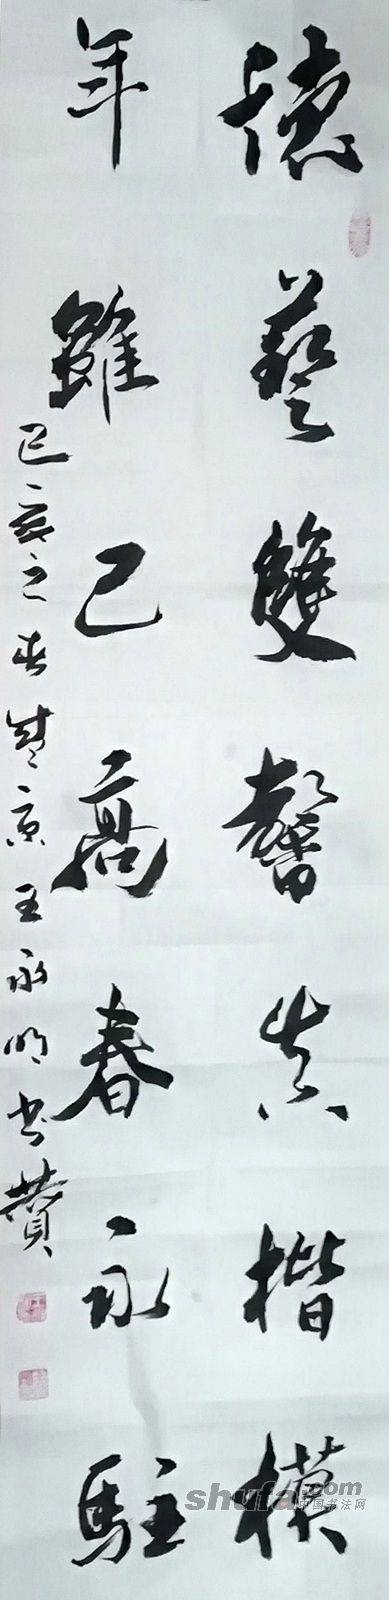 德藝雙馨真楷模
年雖已高春永駐
己亥之春楚京王永明書贊
shufa.com
中国书法网